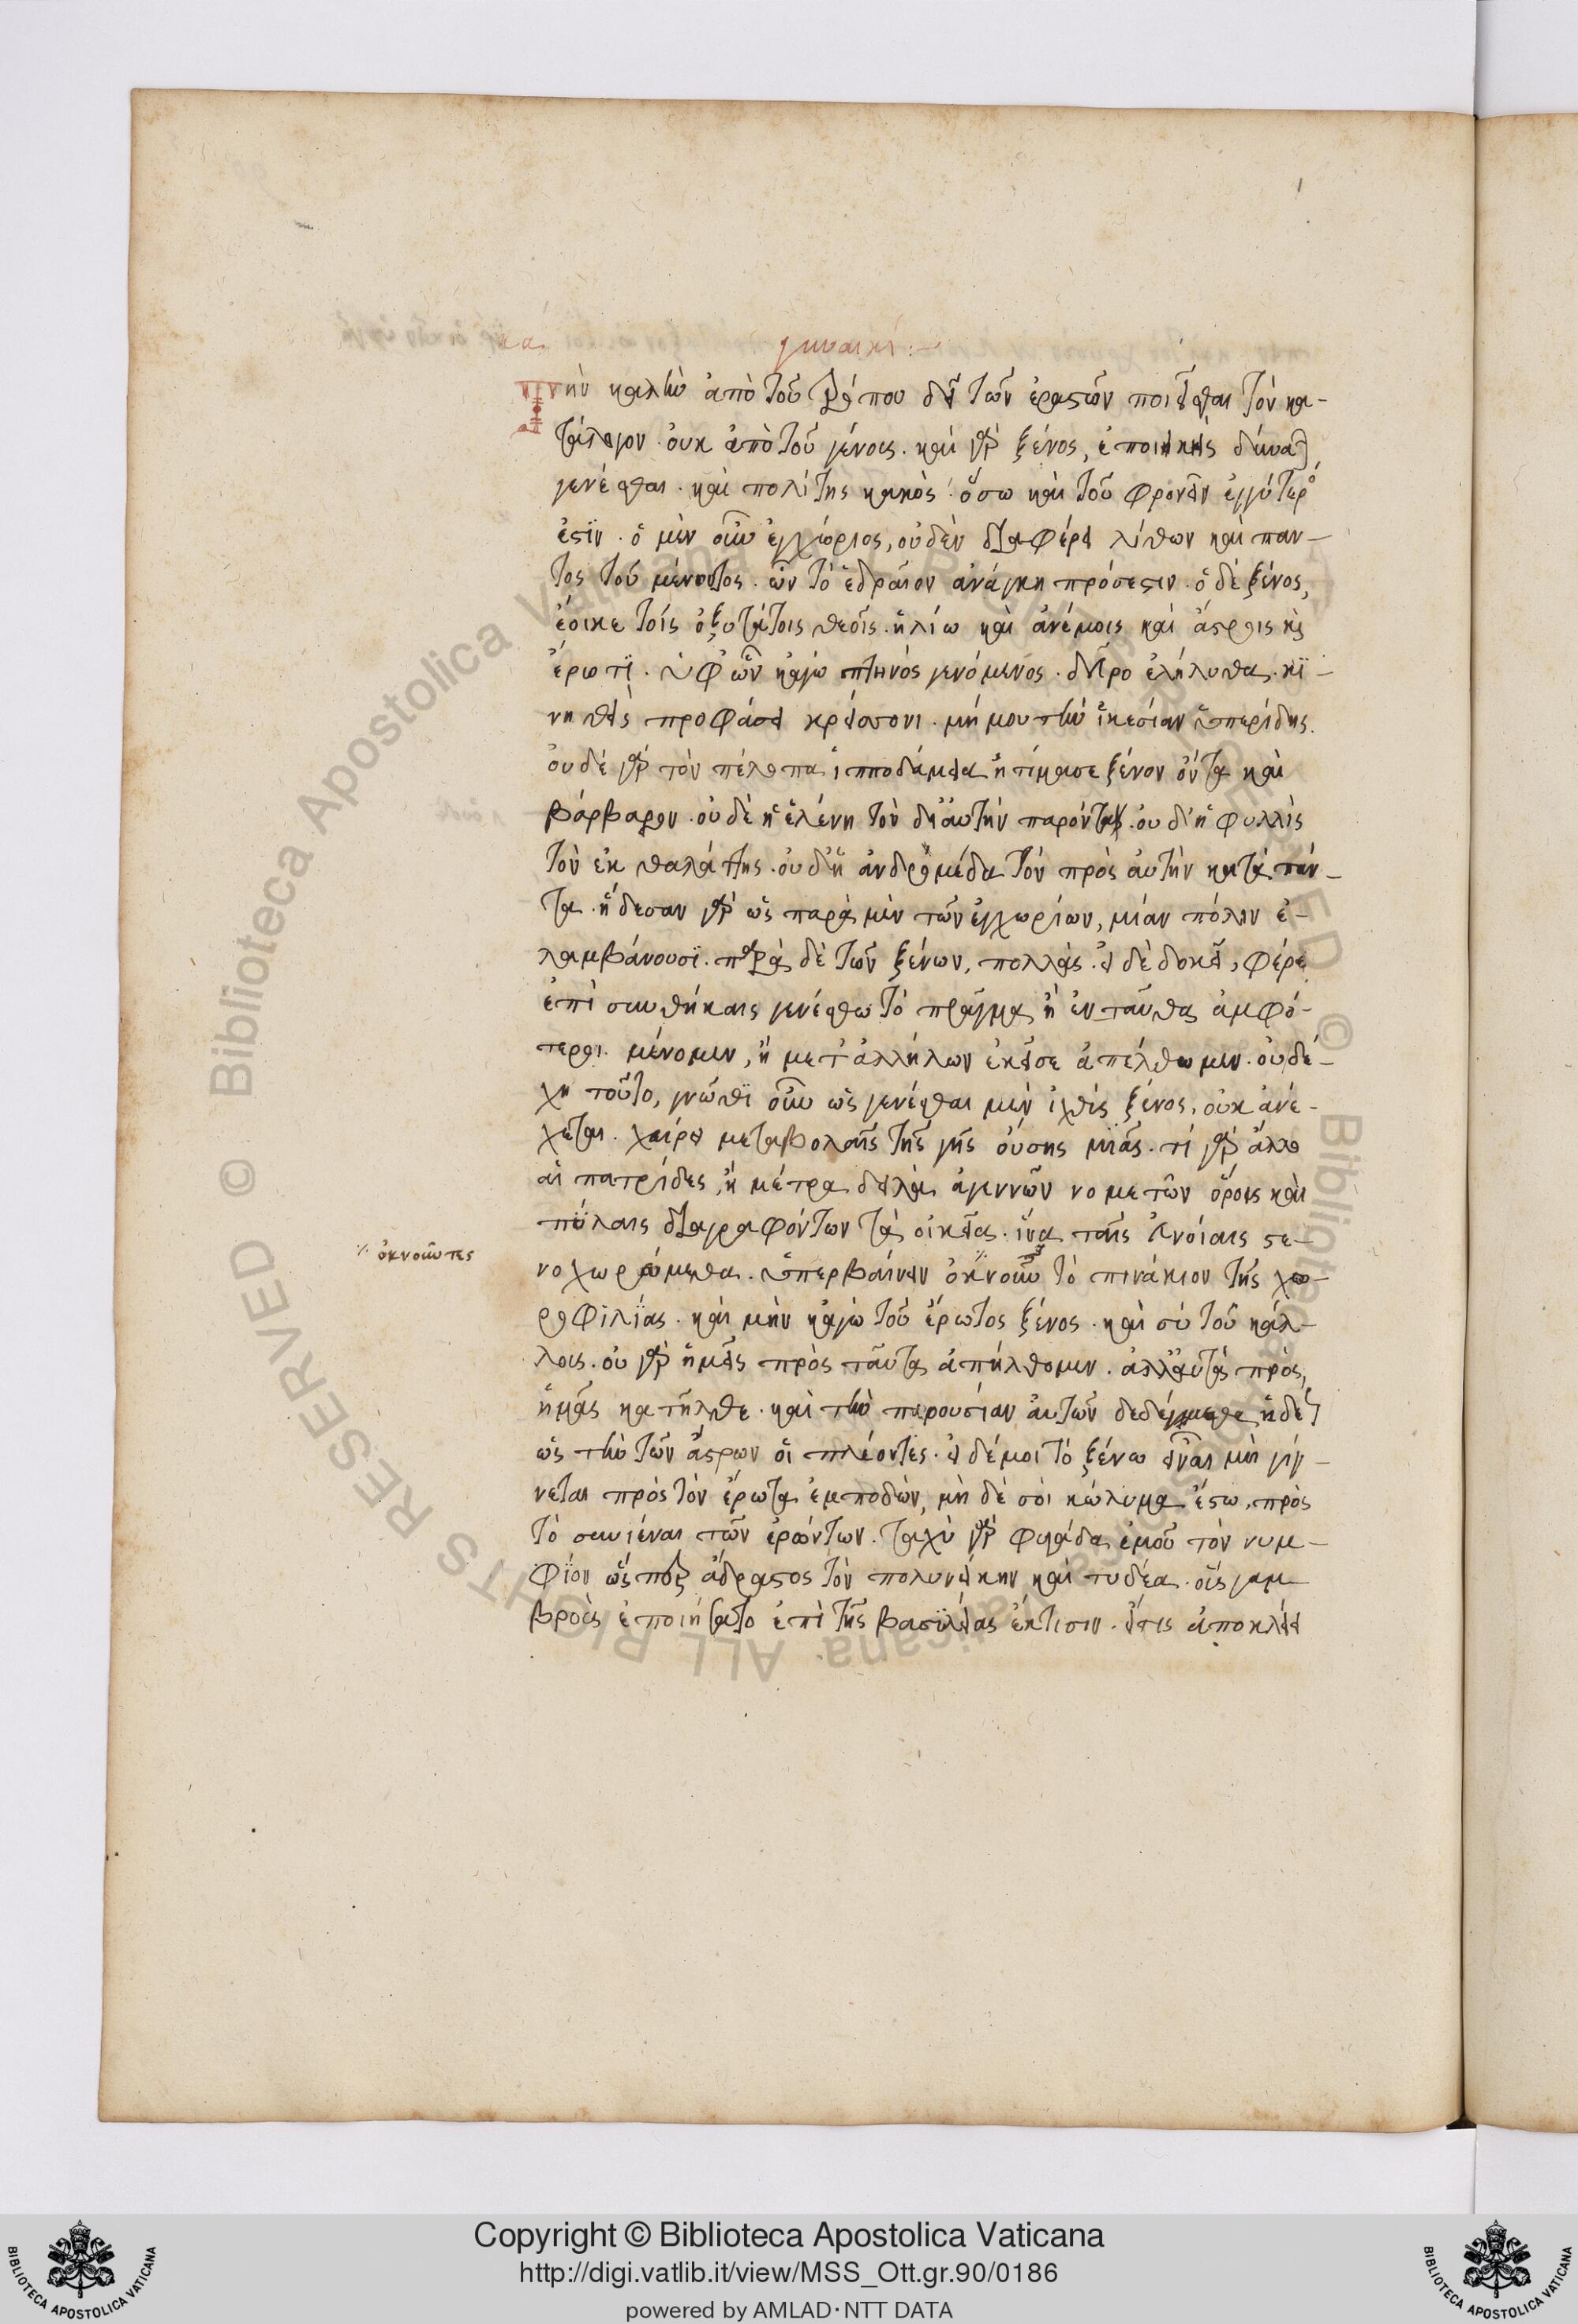 κα γυναικί :-
Τὴν καλὴν ἀπὸ τοῦ τρόπου δεῖ τῶν ἐραστῶν ποιεῖσθαι τὸν κα-
τάλογον. οὐκ ἀπὸ τοῦ γένους. καὶ γὰρ ξένος, ἐποιεικὴς δύναται
γενέσθαι. καὶ πολίτης κακὸς. ὅσω καὶ τοῦ φρονεῖν ἐγγύτερον
ἐστϊν. ὁ μὲν οὖν ἐγχώριος, οὐδὲν διαφέρει λίθων καὶ παν-
τὸς τοῦ μένοντος. ὧν τὸ ἑδραῖον ἀνάγκη πρόσεστιν. ὁ δὲ ξένος,
ἔοικε τοῖς ὀξυτάτοις θεοῖς. ἡλίω καὶ ἀνέμοις καὶ ἄστροις καὶ
ἔρωτϊ. ὑφ' ὧν κἀγὼ πτηνὸς γενόμενος. δεῦρο ἐλήλυθα. κϊ-
νηθεὶς προφάσει κρείσσονι. μή μου τὴν ἱκεσίαν ὑπερίδης.
οὐδὲ γὰρ τὸν πέλοπα ἱπποδάμεια ἠτίμασε ξένον ὄντα καὶ
βάρβαρον. οὐδὲ ἡ ἑλένη τὸν δι' αὐτὴν παρόντα. οὐδ' ἡ φυλλὶς
τὸν ἐκ θαλάττης. οὐδ' ἡ ἀνδρομέδα τὸν πρὸς αὐτὴν καταπάν-
τα. ἤδεσαν γὰρ ὡς παρὰ μὲν τῶν ἐγχωρίων, μίαν πόλιν ἐ-
λαμβάνουσϊ. παρὰ δὲ τῶν ξένων, πολλὰς. εἰ δὲ δοκεῖ, φέρε
ἐπὶ συνθήκαις γενέσθω τὸ πρᾶγμα ἢ ἐνταῦθα ἀμφό-
τεροι μένομεν, ἢ μετ' ἀλλήλων ἐκεῖσε ἀπέλθωμεν. οὐ δέ-
χη τοῦτο, γνῶθϊ οὖν ὡς γενέσθαι μὲν ἰχθὺς ξένος, οὐκ ἀνέ-
χεται. χαίρει μεταβολαῖς τῆς γῆς οὔσης μϊᾶς. τί γὰρ ἄλλο
αἱ πατρίδες, ἢ μέτρα δειλὰ ἀγεννῶν νομετῶν ὅροις καὶ
πύλαις διαγραφόντων τὰ οἰκεῖα. ἵνα ταῖς ἀνοίαις στε-
νοχωρώμεθα. ὑπερβαίνειν ὀκνοῦν τὸ πινάκιον τῆς χω-
⁒ ὀκνοῦντες
ροφϊλϊας. καὶ μὴν κἀγὼ τοῦ ἔρωτος ξένος. καὶ σὺ τοῦ κάλ-
λους. οὐ γὰρ ἡμεῖς πρὸς ταῦτα ἀπήλθομεν. ἀλλ' αὐτὰ πρὸς
ἡμᾶς κατῆλθε. καὶ τὴν παρουσίαν αὐτῶν δεδέγμεθα ἡδέως
ὡς τὴν τῶν ἄστρων οἱ πλέοντες. εἰ δέ μοι τὸ ξένω εἶναι μὴ γίγ-
νεται πρὸς τὸν ἔρωτα ἐμποδὼν, μὴ δὲ σοὶ κώλυμα ἔστω, πρὸς
τὸ συνιέναι τῶν ἐρώντων. ταχὺ γὰρ φυγάδα ἐμοῦ τὸν νυμ-
φϊον ὥς που ἄδραστος τὸν πολυνείκην καὶ τυδέα. οὓς γαμ
βροὺς ἐποιήσατο ἐπὶ τῆς βασϊλείας ἔκτισιν. ἥτις ἀποκλείει
Copyright © Biblioteca Apostolica Vaticana
http://digi.vatlib.it/view/MSS_Ott.gr.90/0186
powered by AMLAD·NTT DATA